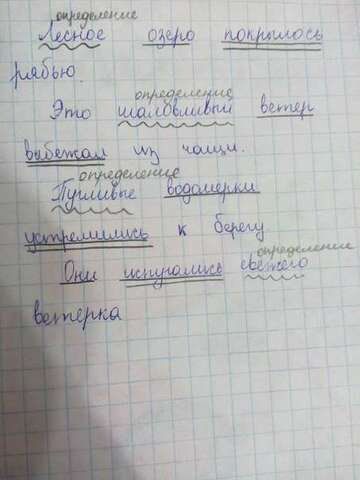 определение
Лесное озеро покрылось
рябью.
определение
Это шаловливый ветер
выбежал из чащи.
определение
Пугливые водомерки
устремились к берегу
определение
Они испугались свежего
ветерка